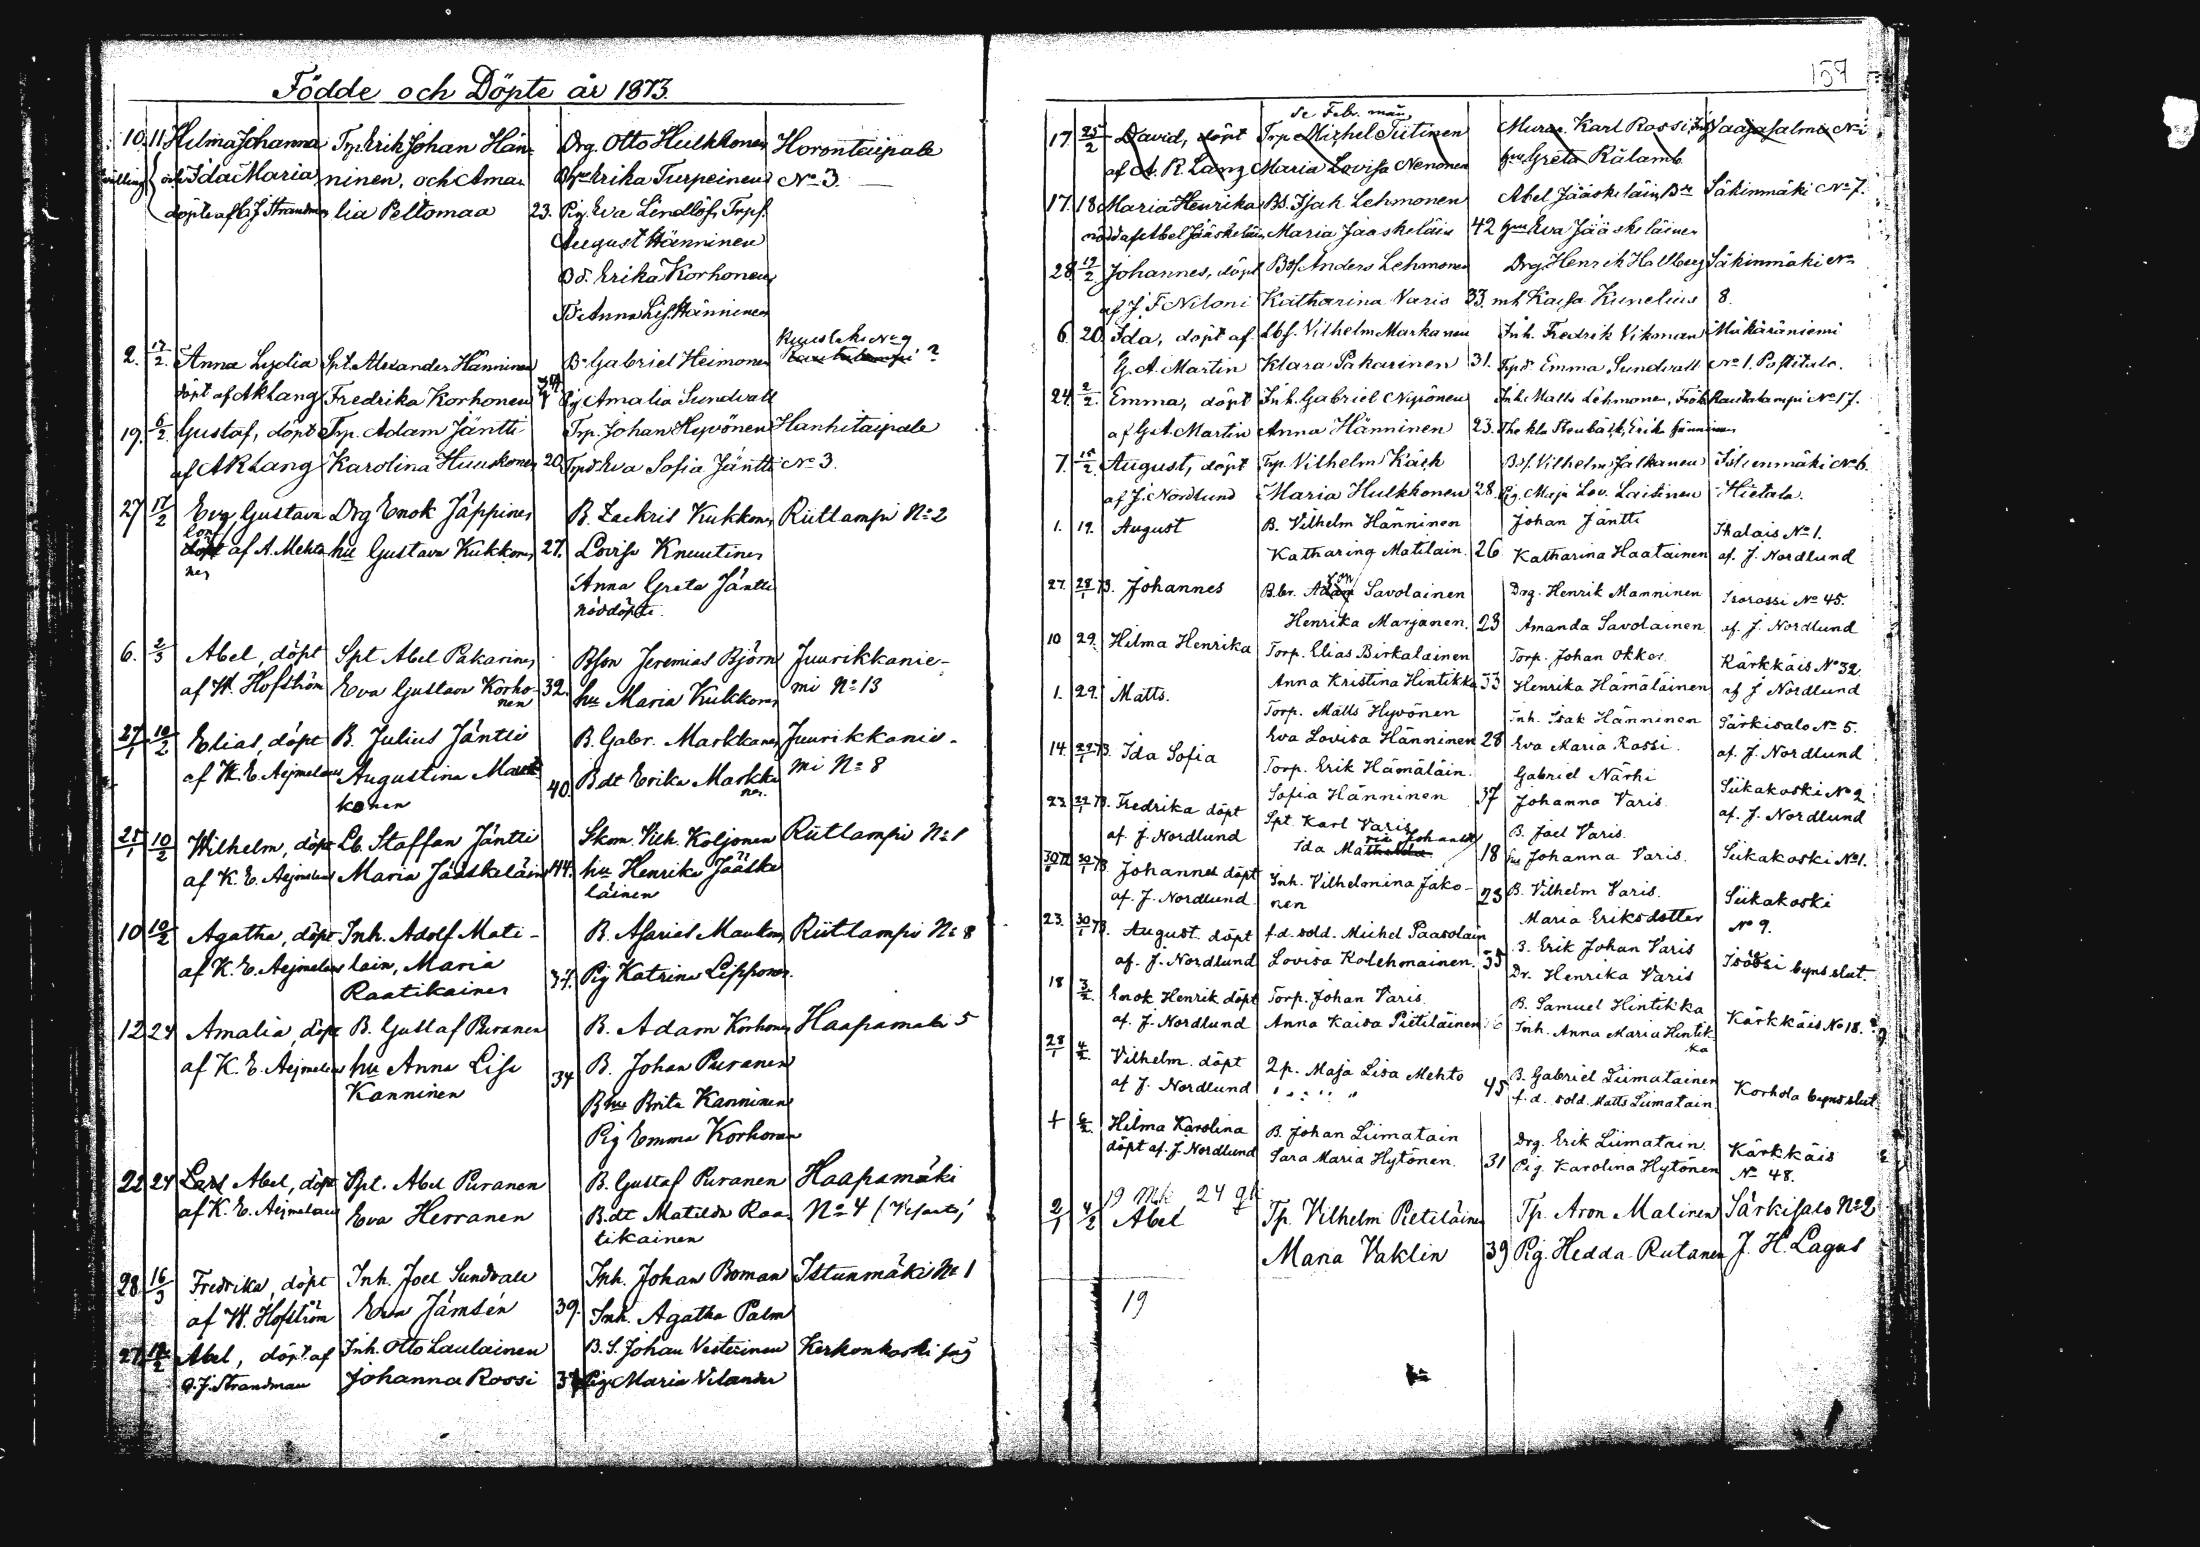 Födde och Döpte år 1873.
10. 11 Hilma Johanna Trp. Erik Johan Hän- Drg. Otto Hulkkonen Horontaipale
och Ida Maria ninen, och Ama- Erika Turpeinen No 3
döpte af C J Strandman lia Peltomaa 23. Pig. Eva Lindlöf, Trps.
August Hänninen
Bd. Erika Korhonen
Td Anna Lis. Hänninen
2. 17/2. Anna Lydia Spt. Alexander Hänninen Br Gabriel Heimonen No 9 ?
döpt af AR Lang Fredrika Korhonen Pig Amalia Sundvall
19. 6/2 Gustaf, döpt Trp. Adam Jäntti Trp. Johan Hyvönen Hanhitaipale
af AR Lang Karolina Huuskonen 20. Trpd Eva Sofia Jäntti No 3.
27 17/2 Eva Gustava Drg Enok Jäppinen B. Zackris Kukkonen Riitlampi No 2
af A. Mehto hu Gustava Kukkonen 27. Lovisa Knuutinen
nen Anna Greta Jäntti
nöddöpte.
6. 2/3 Abel, döpt Spt Abel Pakarinen Bson Jeremias Björn Juurikkanie-
af W. Hofström Eva Gustava Korho- 32. hu Maria Kukkonen mi No 13
nen
27/1 10/2 Elias, döpt B. Julius Jäntti B. Gabr. Markkanen Juurikkanie-
af K. E. Aejmelaeus Augustina 40. Bdt Erika Markka mi No 8
konen nen.
25/1 10/2 Wilhelm, döpt Lb. Staffan Jäntti Skom. Vilh. Koljonen Riitlampi No 1
af K. E. Aejmelaeus Maria Jääskeläin 44. hu Henrika Jääske
läinen
10 10/2 Agatha, döpt Inh. Adolf Mati- B. Asarias Riitlampi No 8
af K. E. Aejmelaeus lain, Maria 37. Pig Katrina Lipponen.
Raatikainen
12 24 Amalia, döpt B. Gustaf Puranen B. Adam Korhonen Haapamäki 5
af K. E. Aejmelaeus hu Anna Lisa 34 B. Johan Puranen
Kanninen Bhu Brita Kanninen
Pig Emma Korhonen
22 24 Lars Abel, döpt Spt. Abel Puranen B. Gustaf Puranen Haapamäki
af K. E. Aejmelaeus Eva Herranen B.dt Matilda Raa- No 4
tikainen
28 16/3 Fredrika, döpt Inh. Joel Sundvall Inh. Johan Boman Istunmäki No 1
af W. Hofström Eva Jämsén 39. Inh. Agatha Palm
27. Abel, döpt af Inh. Otto Laulainen B. S. Johan Vesterinen Kerkonkoski
C. J. Strandman Johanna Rossi Pig. Maria Vilander
157
se Febr. mån
17. 25/2 David, döpt Trp Michel Tiitinen Karl Rossi, Vaajasalmi No 1
af A. R. Lang Maria Lovisa Nenonen hu Greta Rålamb
17. 18 Maria Henrika Bs. Isak Lehmonen Abel Jääskeläin, Säkinmäki No 7.
nödd. af Abel Jääskeläin Maria Jääskeläin 42 hu Eva Jääskeläinen
28. 19/2 Johannes, döpt Anders Lehmonen Drg. Henrik Hallberg Säkinmäki No
af J. F. Niloni Katharina Varis 33. mh Kaisa Kunelius 8.
6. 20. Ida, döpt af Lbs. Vilhelm Markanen Inh. Fredrik Vikman Mäkäräniemi
G. A. Martin Klara Pakarinen 31. Trpd. Emma Sundvall No 1. Postitalo.
24. 2/2. Emma, döpt Inh. Gabriel Nypönen Inh. Matts Lehmonen, Frök Rautalampi No 17.
af G A. Martin Anna Hänninen 23. Thekla Stenbäck, Erika Hänninen
7. 15/2 August, döpt Trp. Vilhelm Käck Bs. Vilhelm Jalkanen Istunmäki No 6.
af J. Nordlund Maria Hulkkonen 28. Pig. Maja Lov. Laitinen Hietala.
1. 19. August B. Vilhelm Hänninen Johan Jäntti Ihalais No 1.
Katharina Matilain. 26 Katharina Haatainen af. J. Nordlund
27. 28/1 73. Johannes B.br. Savolainen Drg. Henrik Manninen Isorossi No 45.
Henrika Marjanen. 23 Amanda Savolainen af. J. Nordlund
10 29. Hilma Henrika Torp. Elias Birkalainen Torp. Johan Okko. Kärkkäis No 32.
Anna Kristina Hintikka 33 Henrika Hämäläinen af J. Nordlund
1. 29. Matts. Torp. Matts Hyvönen Inh. Isak Hänninen Särkisalo No 5.
Eva Lovisa Hänninen 28 Eva Maria Rossi. af. J. Nordlund
14 29/1 73. Ida Sofia Torp. Erik Hämäläin. Gabriel Närhi Siikakoski No 2
Sofia Hänninen 37 Johanna Varis. af. J. Nordlund
23 73. Fredrika döpt Spt. Karl Varis B. Joel Varis.
af. J. Nordlund Ida Johansdr 18 hu Johanna Varis. Siikakoski No 1.
30/1 73. Johannes döpt Inh. Vilhelmina Jako- B. Vilhelm Varis. Siikakoski
af. J. Nordlund. nen 23 Maria Eriksdotter No 9.
23. 30/1 73. August. döpt f.d. sold. Michel Paasolain B. Erik Johan Varis byns slut.
af. J. Nordlund Lovisa Kolehmainen. 35 Dr. Henrika Varis
18 3/2. Enok Henrik döpt Torp. Johan Varis. B. Samuel Hintikka Kärkkäis No 18.
af. J. Nordlund Anna Kaisa Pietiläinen Inh. Anna Maria Hintik-
ka
28/1 4/2. Vilhelm. döpt 2p. Maja Lisa Mehto B. Gabriel Liimatainen Korhola byns slut.
af J. Nordlund " " " " 45 f.d. sold. Matts Liimatain.
+ 6/2. Hilma Karolina B. Johan Liimatain Drg. Erik Liimatain. Kärkkäis
döpt af. J. Nordlund Sara Maria Hytönen. 31 Pig. Karolina Hytönen No 48.
19 24
2/1 4/2 Abel Tp. Vilhelm Pietiläinen Tp. Aron Malinen Särkisalo No 2
Maria Vaklin 39 Pig. Hedda Rutanen J. H. Lagus
19